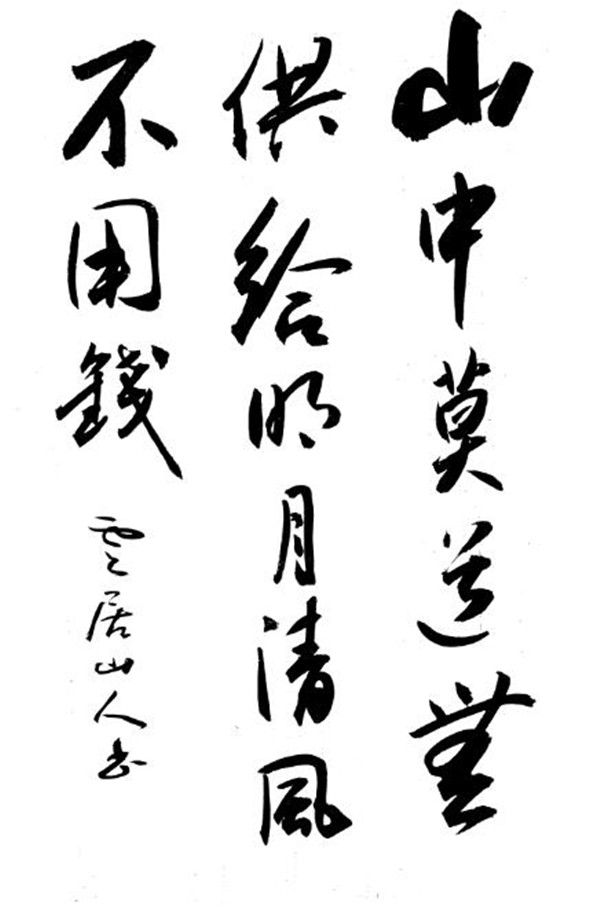 山中莫道無
供給明月清風
不用錢
雲居山人書